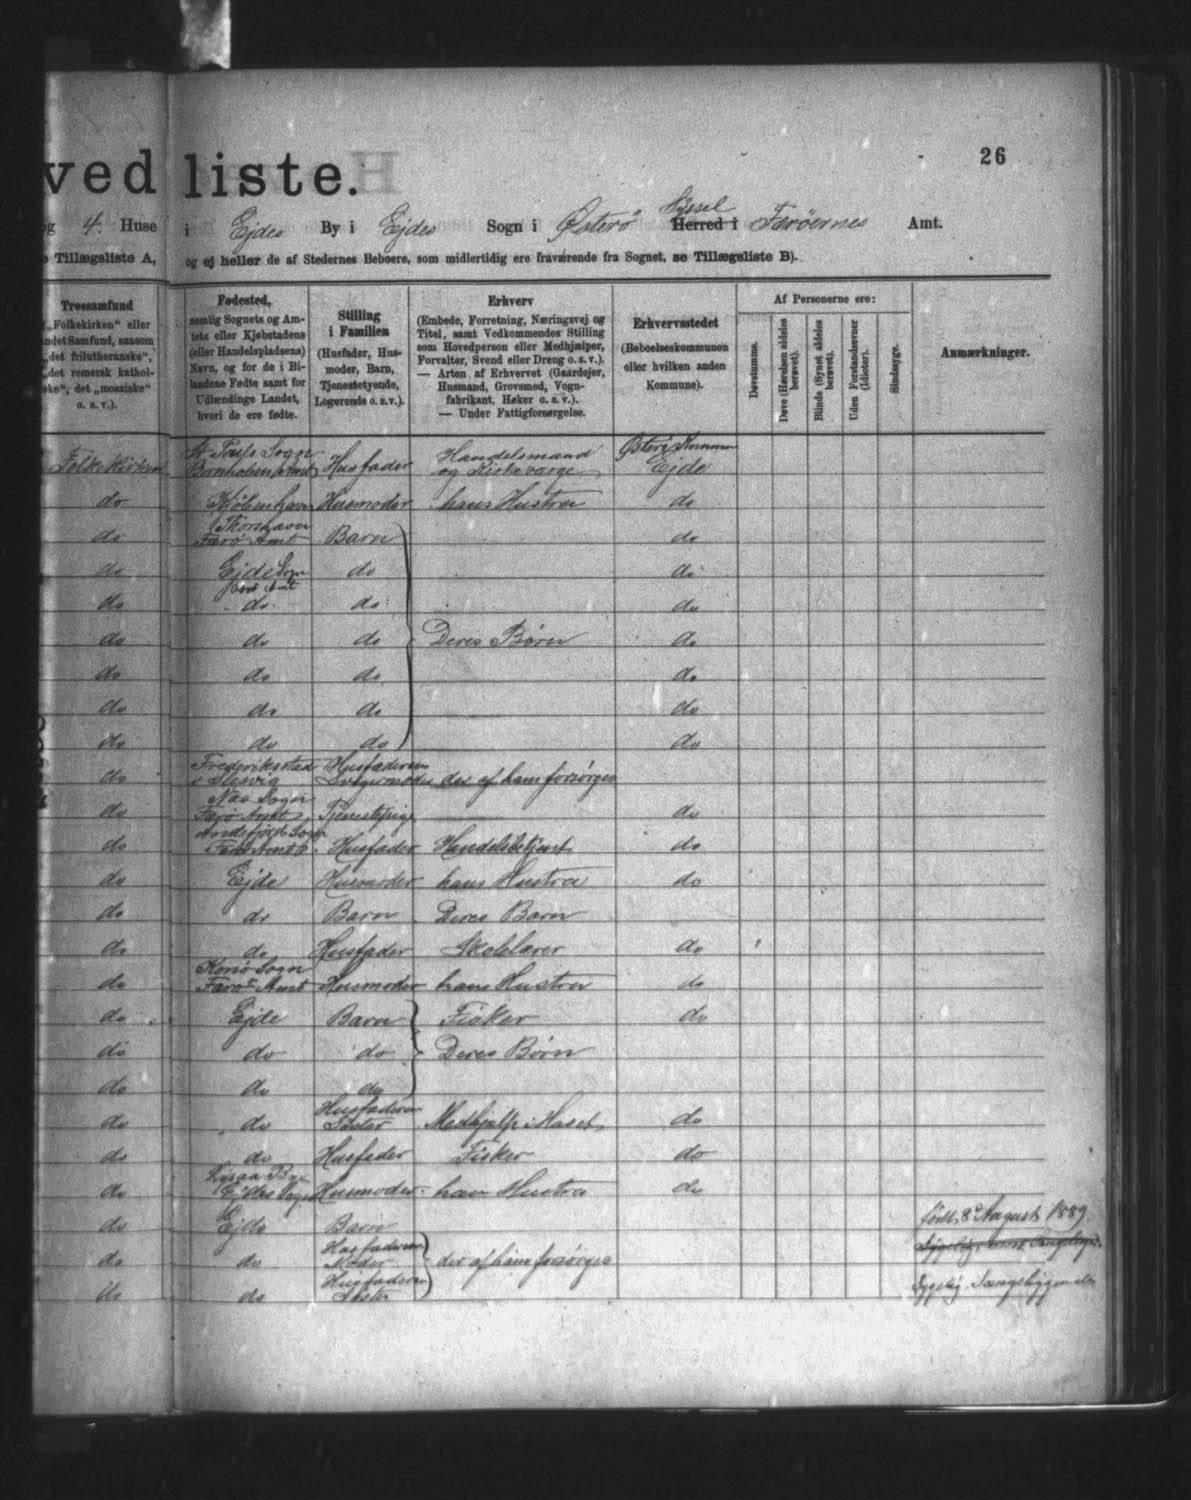 26
ved liste.
og 4. Huse i Ejdes By i Ejdes Sogn i Østerø Syssel Herred i Færøernes Amt.
e Tillægsliste A, og ej heller de af Stedernes Beboere, som midlertidig ere fraværende fra Sognet, se Tillægsliste B).
Trossamfund
(„Folkekirken“ eller
andet Samfund, saasom
„det frilutheranske“,
„det romersk kathol-
ske“, det „mosaiske“
o. s. v.).
Fødested,
nemlig Sognets og Am-
tets eller Kjøbstadens
(eller Handelspladsens)
Navn, og for de i Bi-
landene Fødte samt for
Udlændinge Landet,
hvori de ere fødte.
Stilling
i Familien
(Husfader, Hus-
moder, Barn,
Tjenestetyende,
Logerende o. s. v.).
Erhverv
(Embede, Forretning, Næringsvej og
Titel, samt Vedkommendes Stilling
som Hovedperson eller Medhjælper,
Forvalter, Svend eller Dreng o. s. v.).
— Arten af Erhvervet (Gaardejer,
Husmand, Grovsmed, Vogn-
fabrikant, Høker o. s. v.).
— Under Fattigforsørgelse.
Erhvervsstedet
(Beboelseskommunen
eller hvilken anden
Kommune).
Af Personerne ere:
Døvstumme.
Døve (Hørelsen aldeles berøvet).
Blinde (Synet aldeles berøvet).
Uden Forstandsevner (Idioter).
Sindssyge.
Anmærkninger.
Folkekirken St Pouls Sogn Bornholms Amt Husfader Handelsmand og Kirkeværge Østerø Kommune Ejde
do Kjøbenhavn Husmoder hans Hustru do
do Thorshavn Færø Amt Barn do
do Ejde Sogn Færø Amt do do
do do do do
do do do Deres Børn do
do do do do
do do do do
do do do do
do Frederiksstad i Slesvig Husfaderens Svigermoder der af ham forsørges
do Næs Sogn Færø Amt Tjenestepige do
do Andefjord Sogn Færø Amt Husfader Handelsbetjent do
do Ejde Husmoder hans Hustru do
do do Barn Deres Barn
do do Husfader Skolelærer do
do Konø Sogn Færø Amt Husmoder hans Hustru do
do Ejde Barn Fisker do
do do do Deres Børn
do do do
do do Husfaderens Søster Medhjælp i Huset do
do do Husfader Fisker do
do By Ejdes Sogn Husmoder hans Hustru do
do Ejde Barn født 8 August 1889
do do Husfaderens Moder der af ham forsørges
do do Husfaderens Søster Sygelig Sengeliggende